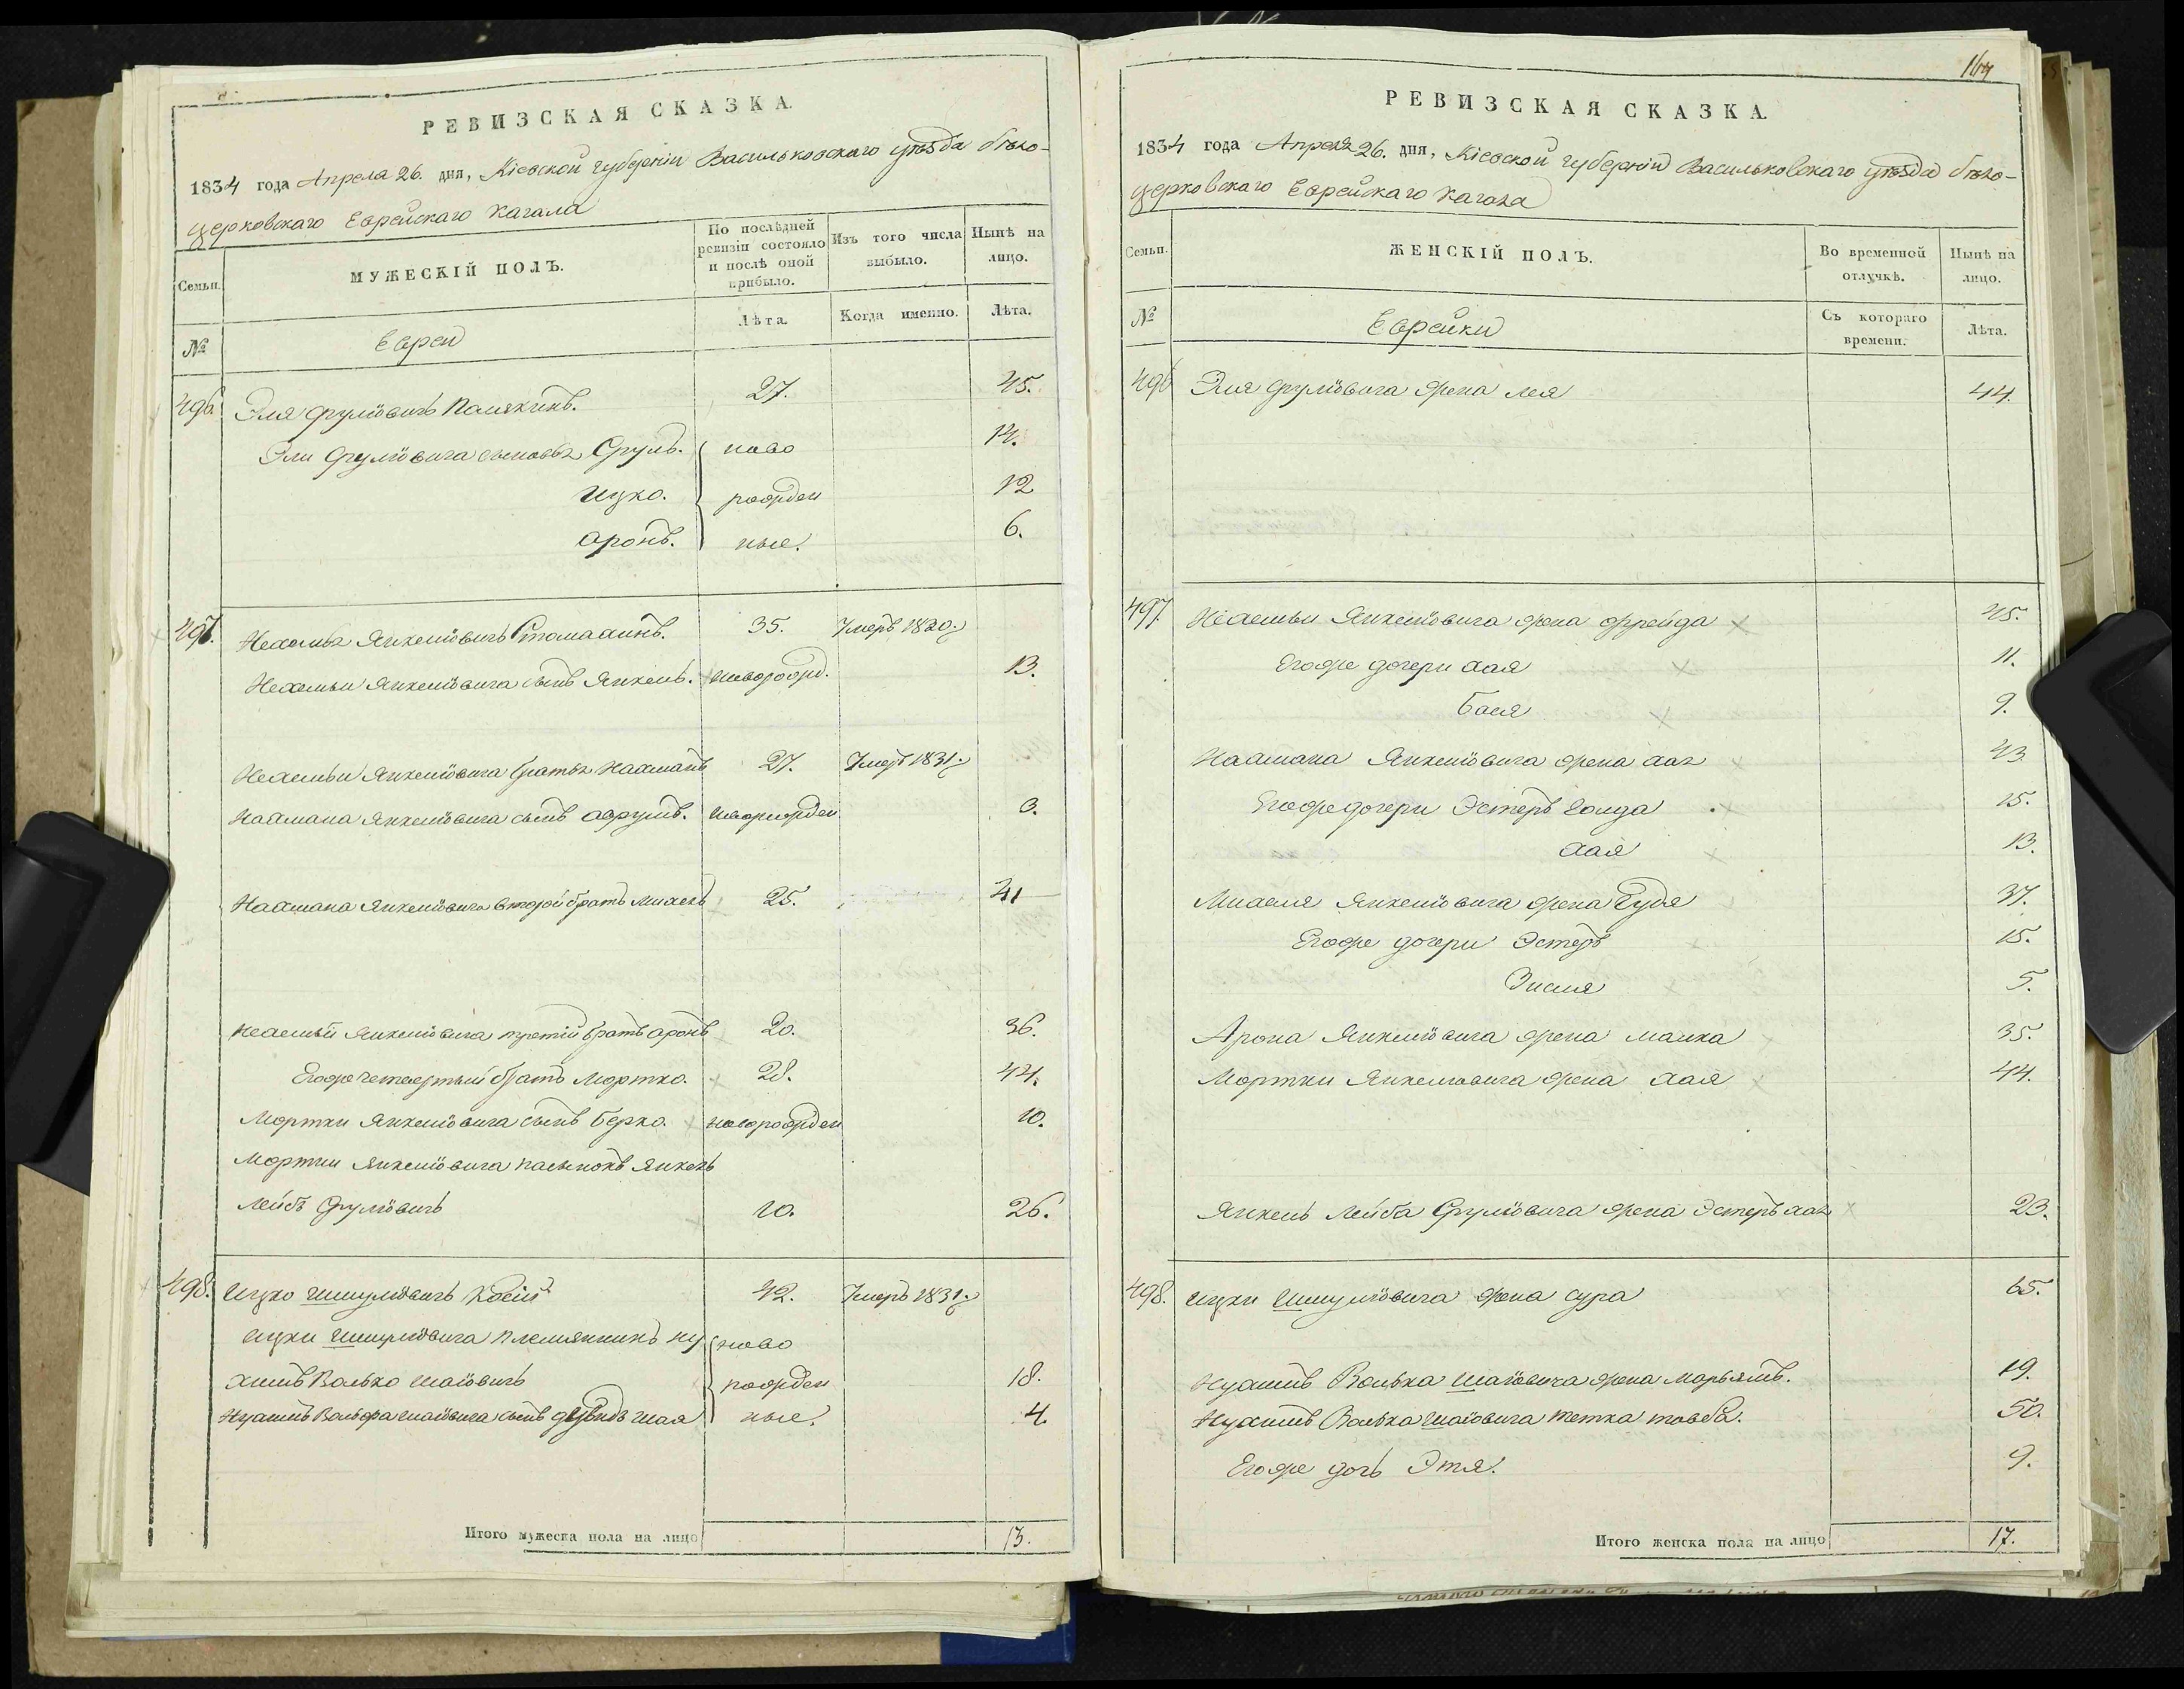 РЕВИЗСКАЯ СКАЗКА.
1834 года Апреля 26. дня, Кіевской губерніи Васильковскаго уѣзда бѣло-
церковскаго Еврейскаго кагала
Семьи.
МУЖЕСКІЙ ПОЛЪ.
По послѣдней ревизіи состояло и послѣ оной прибыло.
Изъ того числа выбыло.
Нынѣ на лицо.
№
Евреи
Лѣта.
Когда именно.
Лѣта.
496 Эля Срулiовичъ 27. 45.
Эли Срулiовича сыновья Сруль. ново 14.
Ицко. рожден 12
Аронъ. ные. 6.
497. Нехемья Янкелiовичъ 35. Умеръ 1820.
Нехемьи Янкелiовича сынъ Янкель. Новорожд. 13.
Нехемьи Янкелiовича братъ Нахманъ 27. Умеръ 1831.
Нахмана Янкелiовича сынъ Аврумъ. Новорожден 3.
Нахмана Янкелiовича второй братъ Михель 25. 41
Нехемьи Янкелiовича третiй братъ Аронъ 20. 36.
Егоже четвертый братъ Мортко. 28. 44.
Мортки Янкелiовича сынъ Берко. новорожден 10.
Мортки Янкелiовича пасынокъ Янкель
Лейбъ Срулiовичъ 10. 26.
498. Ицко Шмулiовичъ 42. Умеръ 1831.
Ицки Шмулiовича племянникъ Ну ново
химъ Волько Шаiовичъ рожден 18.
Нухимъ Вольфа Шаiовича сынъ Дувидъ Шая ные. 4.
Итого мужеска пола на лицо 13.
164
РЕВИЗСКАЯ СКАЗКА.
1834 года Апреля 26. дня, Кіевской губерніи Васильковскаго уѣзда бѣло-
церковскаго Еврейскаго кагала
Семьи.
ЖЕНСКІЙ ПОЛЪ.
Во временной отлучкѣ.
Нынѣ на лицо.
№
Еврейки
Съ котораго времени.
Лѣта.
496 Эля Срулiовича жена Лея 44.
497. Нехемьи Янкелiовича жена Фрейда 45.
Егоже дочери Хая 11.
Бася 9.
Нахмана Янкелiовича жена Хая 43
Егоже дочери Эстеръ Голда 15.
Хая 13.
Михеля Янкелiовича жена Гудя 37.
Егоже дочери Эстеръ 15.
Зисля 5.
Арона Янкелiовича жена Малка 35.
Мортки Янкелiовича жена Хая 44.
Янкель Лейба Срулiовича жена Эстеръ Хая 23.
498. Ицки Шмулiовича жена Сура 65.
Нухимъ Волька Шаiовича жена Марьямъ. 19.
Нухимъ Волька Шаiовича тетка Товба. 50.
Егоже дочь Этя. 9.
Итого женска пола на лицо 17.